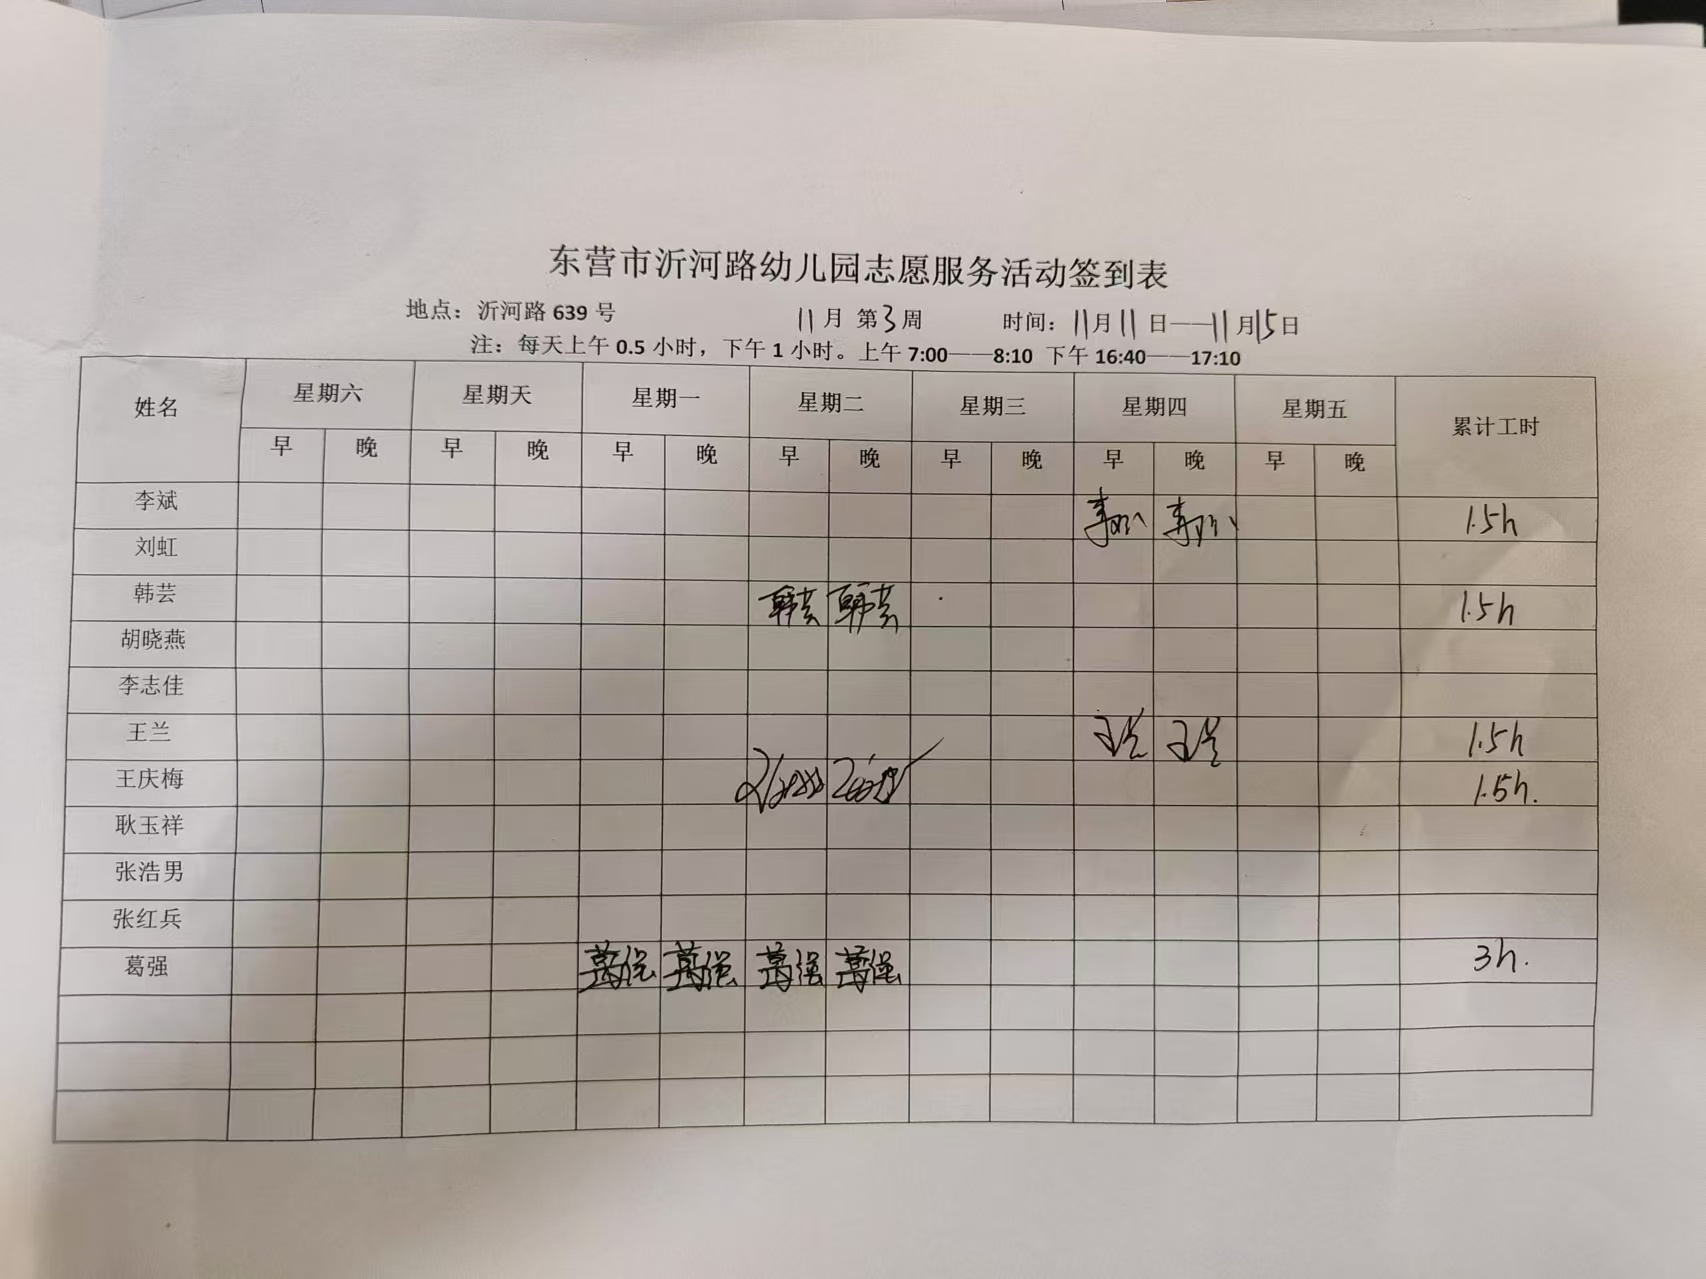 东营市沂河路幼儿园志愿服务活动签到表
地点：沂河路 639 号 11月 第3周 时间：11月11日——11月15日
注：每天上午 0.5 小时，下午 1 小时。上午 7:00——8:10 下午 16:40——17:10
姓名 星期六 星期天 星期一 星期二 星期三 星期四 星期五 累计工时
早 晚 早 晚 早 晚 早 晚 早 晚 早 晚 早 晚
李斌 1.5h
刘虹
韩芸 韩芸 韩芸 1.5h
胡晓燕
李志佳
王兰 王兰 王兰 1.5h
王庆梅 1.5h.
耿玉祥
张浩男
张红兵
葛强 葛强 葛强 葛强 葛强 3h.